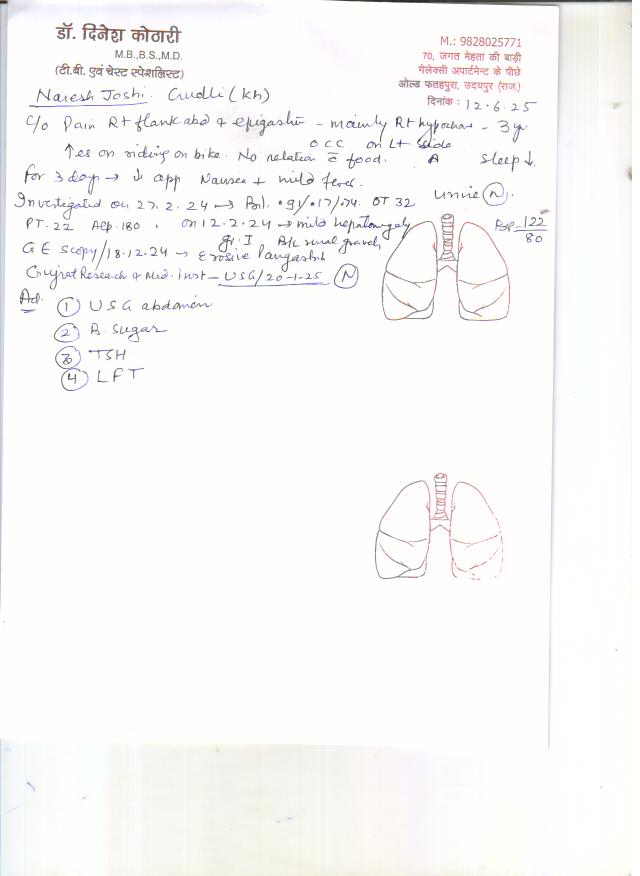 डॉ. दिनेश कोठारी
M.B.,B.S.,M.D.
(टी.बी. एवं चेस्ट स्पेशलिस्ट)
M.: 9828025771
70, जगत मेहता की बाड़ी
गेलेक्सी अपार्टमेन्ट के पीछे
ओल्ड फतहपुरा, उदयपुर (राज.)
दिनांक : 12.6.25
Naresh Joshi.
C/o Pain Rt flank abd & epigastr - mainly Rt hypochon - 3y
occ on Lt side
↑es on riding on bike. No relation c̄ food. A sleep ↓.
for 3 day → ↓ app Nausea + mild fever.
Urine (N).
Investigated on 27.2.24 → Bil. .91/.17/.74 OT 32
PT. 22 ALP. 180 . on 12.2.24 → mild hepatomegaly
BP 122/80
gr. I B/L renal gravels
G E Scopy/18.12.24 → Erosive Pangastrit
Gujrat Research & Med. Inst - USG/20-1-25 (N)
Ad.
① USG abdomen
② B. Sugar
③ TSH
④ LFT